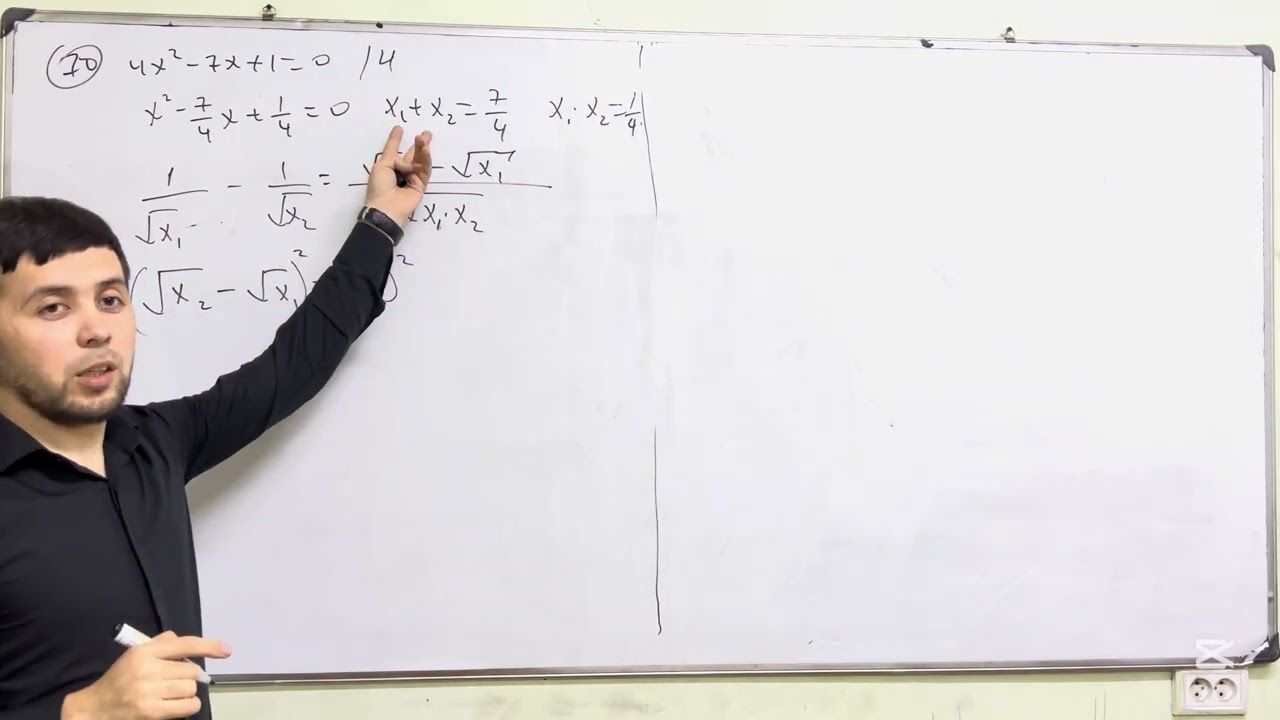 70 4x² - 7x + 1 = 0 /4
x² - 7/4 x + 1/4 = 0 x₁ + x₂ = 7/4 x₁ · x₂ = 1/4
1/√x₁ - 1/√x₂ = - √x₁ / x₁ · x₂
(√x₂ - √x₁)² )²